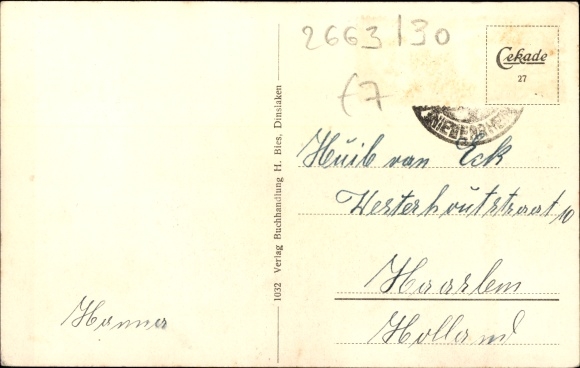 2663/30
Cekade
27
(7
Huib van Eck
Westerhoutstraat 10
Haarlem
Holland
Hanna
1032 Verlag Buchhandlung H. Bies, Dinslaken